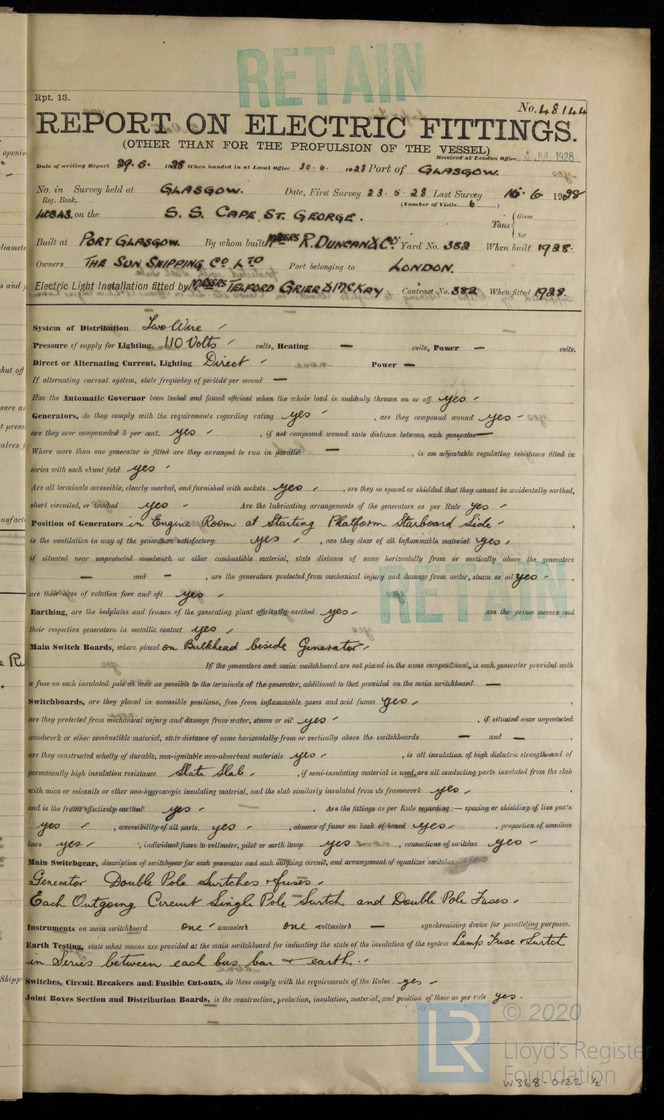 RETAIN
Rpt. 13.
No. 48144
REPORT ON ELECTRIC FITTINGS.
(OTHER THAN FOR THE PROPULSION OF THE VESSEL)
Received at London Office JUL 1928
Date of writing Report 29.6. 1928 When handed in at Local Office 30.6. 1928 Port of GLASGOW.
No. in Survey held at GLASGOW. Date, First Survey 23.5.28 Last Survey 16.6.1928
Reg. Book. (Number of Visits 6)
on the S. S. CAPE ST. GEORGE. Tons { Gross Net
Built at PORT GLASGOW. By whom built MESSRS R. DUNCAN & Co. Yard No. 382 When built 1928.
Owners THE SUN SHIPPING CO LTD Port belonging to LONDON.
Electric Light Installation fitted by MESSRS TELFORD GRIER & MCKAY Contract No. 382 When fitted 1928.
System of Distribution Two Wire
Pressure of supply for Lighting 110 Volts volts, Heating — volts, Power — volts.
Direct or Alternating Current, Lighting Direct Power —
If alternating current system, state frequency of periods per second —
Has the Automatic Governor been tested and found efficient when the whole load is suddenly thrown on or off yes
Generators, do they comply with the requirements regarding rating yes , are they compound wound yes
are they over compounded 5 per cent. yes , if not compound wound state distance between each generator —
Where more than one generator is fitted are they arranged to run in parallel — , is an adjustable regulating resistance fitted in
series with each shunt field yes
Are all terminals accessible, clearly marked, and furnished with sockets yes , are they so spaced or shielded that they cannot be accidentally earthed,
short circuited, or touched yes Are the lubricating arrangements of the generators as per Rule yes
Position of Generators in Engine Room at Starting Platform Starboard Side
is the ventilation in way of the generators satisfactory yes , are they clear of all inflammable material yes
if situated near unprotected woodwork or other combustible material, state distance of same horizontally from or vertically above the generators
— and — , are the generators protected from mechanical injury and damage from water, steam or oil yes
are their axes of rotation fore and aft yes
RETAIN
Earthing, are the bedplates and frames of the generating plant efficiently earthed yes are the prime movers and
their respective generators in metallic contact yes
Main Switch Boards, where placed on Bulkhead beside Generator
If the generators and main switchboard are not placed in the same compartment, is each generator provided with
a fuse on each insulated pole as near as possible to the terminals of the generator, additional to that provided on the main switchboard —
Switchboards, are they placed in accessible positions, free from inflammable gases and acid fumes yes
are they protected from mechanical injury and damage from water, steam or oil yes , if situated near unprotected
woodwork or other combustible material, state distance of same horizontally from or vertically above the switchboards — and —
are they constructed wholly of durable, non-ignitable non-absorbent materials yes , is all insulation of high dielectric strength and of
permanently high insulation resistance Slate Slab , if semi-insulating material is used, are all conducting parts insulated from the slab
with mica or micanite or other non-hygroscopic insulating material, and the slab similarly insulated from its framework yes
and is the frame effectively earthed yes Are the fittings as per Rule regarding:— spacing or shielding of live parts
yes , accessibility of all parts yes , absence of fuses on back of board yes , proportion of omnibus
bars yes , individual fuses to voltmeter, pilot or earth lamp yes , connections of switches yes
Main Switchgear, description of switchgear for each generator and each outgoing circuit, and arrangement of equalizer switches
Generator Double Pole Switches & fuses
Each Outgoing Circuit Single Pole Switch and Double Pole Fuses
Instruments on main switchboard one ammeters one voltmeters — synchronising device for paralleling purposes.
Earth Testing, state what means are provided at the main switchboard for indicating the state of the insulation of the system Lamp Fuse & Switch
in Series between each bus bar & earth
Switches, Circuit Breakers and Fusible Cut-outs, do these comply with the requirements of the Rules yes
Joint Boxes Section and Distribution Boards, is the construction, protection, insulation, material, and position of these as per rule yes.
LR © 2020
Lloyd's Register
Foundation
W368-0122 1/2